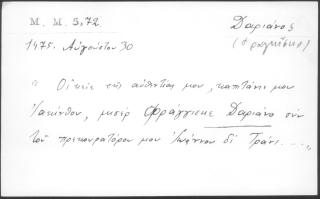 Μ. Μ. 5,72
Δαριάνος
(Φραγκίσκος)
1475. Αὐγούστου 30
"Οἱκεῖς τῆς αὐθεντίας μου, καπιτάνε μου
Ἰακύνθου, μισὲρ Φράγγισκε Δαριάνο σὺν
τοῦ προκουρατόρου μου Ἰωάννου δὲ Τράνι....."